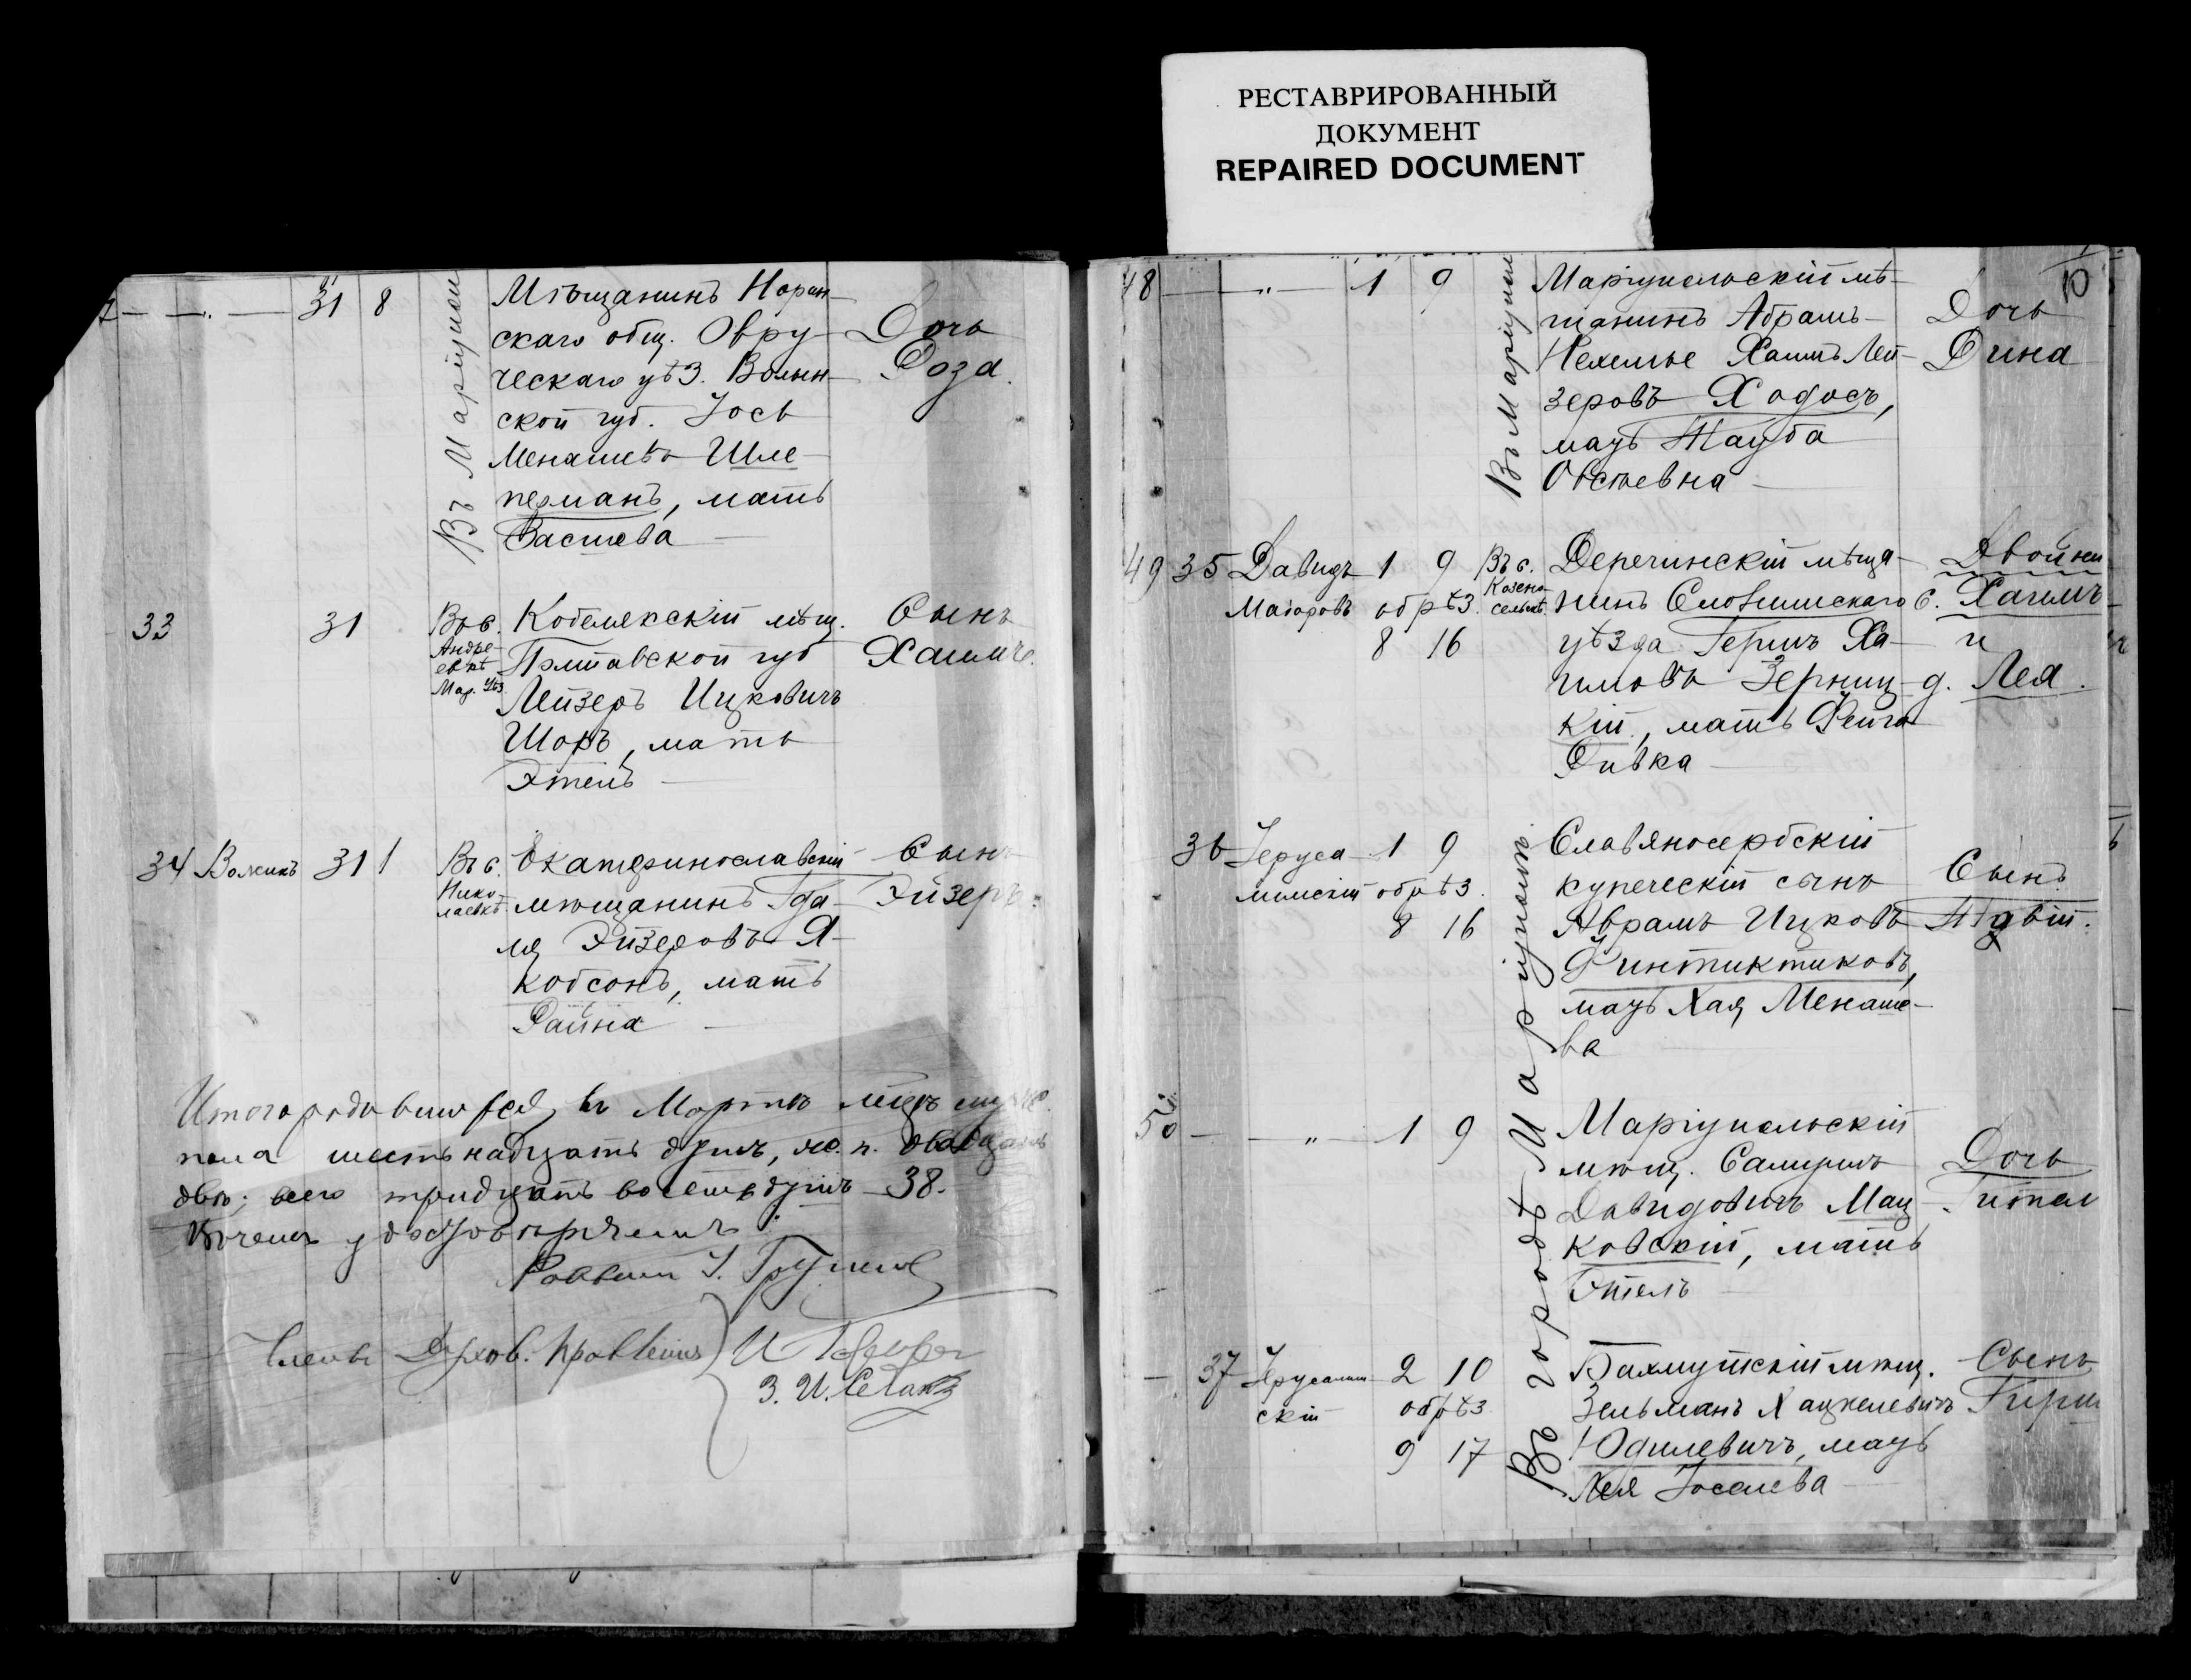 РЕСТАВРИРОВАННЫЙ
ДОКУМЕНТ
REPAIRED DOCUMENT
31 8
Въ Маріупол
Мѣщанинъ Норин-
скаго общ. Овру-
ческаго уѣз. Волын-
ской губ. Іось
Менашевъ Шле-
перманъ, мать
Басшева
Дочь
Роза.
33
31
Въ с.
Андре-
евкѣ
Мар. уѣз.
Кобелякскій мѣщ.
Полтавской губ
Лейзеръ Ицковичъ
Шоръ, мать
Этель
Сынъ
Хаимъ.
34
31 1
Въ с.
Нико-
лаевкѣ
Екатеринославскій
мѣщанинъ Гда-
ля Эйзеровъ Я-
кобсонъ, мать
Райна
Сынъ
Эйзеръ.
Итого родившихся въ Мартѣ мѣсяцѣ мужс.
пола шестьнадцать душъ, ж. п. двадцать
двѣ; всего тридцать восемь душъ 38.
Въ чемъ удостовѣряемъ:
Раввинъ
Члены Духов. Правленія
10
48 — „ — 1 9
Въ Маріупол
Маріупольскій мѣ-
щанинъ Абрамъ-
Нехемье Хаимъ Лей-
зеровъ Ходосъ,
мать Тауба
Овсеевна
Дочь
Дина
49 35 Давидъ 1 9
Мазоровъ обрѣз.
8 16
Въ с.
Деречинскій мѣща-
нинъ Слонимскаго
уѣзда Гершъ Ха-
имовъ Зерниц-
кій, мать Фейга
Ривка
Двойни
с. Хаимъ
и
д. Лея.
36 Іеруса- 1 9
лимскій обрѣз.
8 16
Славяносербскій
купеческій сынъ
Абрамъ Ицковъ
Финтиктиковъ,
мать Хая Менаше-
ва
Сынъ
50 — „ — 1 9
Въ городѣ Маріуполѣ
Маріупольскій
мѣщ. Самуилъ
Давидовичъ Мац-
ковскій, мать
Этель
Дочь
Гител
37 Іерусалим- 2 10
скій обрѣз.
9 17
Бахмутскій мѣщ.
Зельманъ Хацкелевичъ
Юдилевичъ, мать
Лея Іоселева
Сынъ
Гирш